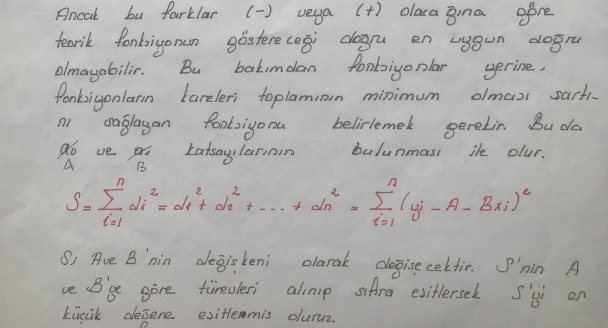 Ancak bu farklar (-) veya (+) olacağına göre
teorik fonksiyonun göstereceği doğru en uygun doğru
olmayabilir. Bu bakımdan fonksiyonlar yerine,
fonksiyonların kareleri toplamının minimum olması şartı-
nı sağlayan fonksiyonu belirlemek gerekir. Bu da
a₀ ve a₁ katsayılarının bulunması ile olur.
A B
S = \sum_{i=1}^{n} di² = d1² + d2² + --- + dn² = \sum_{i=1}^{n} (yi - A - Bxi)²
S; A ve B'nin değişkeni olarak değişecektir. S'nin A
ve B'ye göre türevleri alınıp sıfıra eşitlersek S'yi en
küçük değere eşitlemiş oluruz.